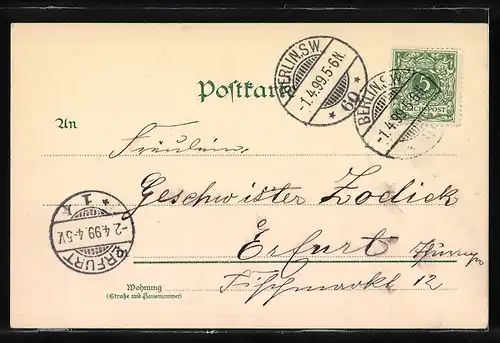 BERLIN.S.W.
-1.4.99.5-6N.
* 69 *
BERLIN.S.W.
-1.4.99.5-6N.
5
REICHSPOST
Postkarte
An
Fräulein
Geschwister Zodick
Erfurt
Fischmarkt 12
* 1 k
-2.4.99.4-5V.
ERFURT
Wohnung
(Straße und Hausnummer)